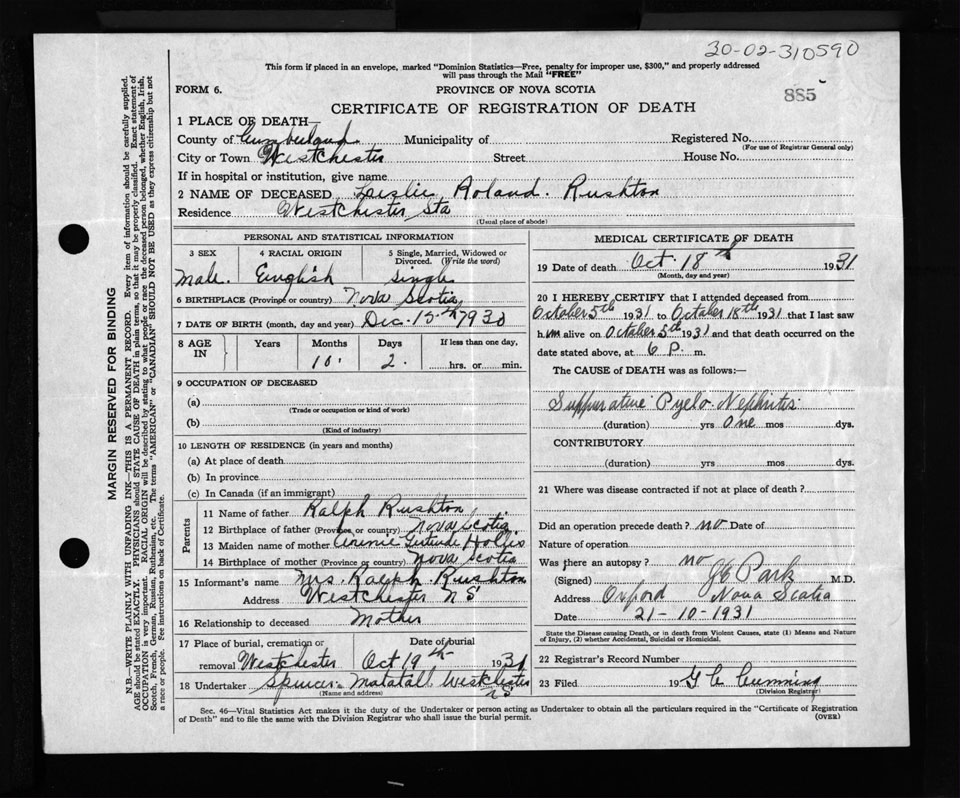 30-02-310590
This form if placed in an envelope, marked "Dominion Statistics—Free, penalty for improper use, $300," and properly addressed
will pass through the Mail "FREE"
FORM 6.
PROVINCE OF NOVA SCOTIA
885
CERTIFICATE OF REGISTRATION OF DEATH
1 PLACE OF DEATH—
County of Cumberland Municipality of Registered No.
(For use of Registrar General only)
City or Town Westchester Street House No.
If in hospital or institution, give name
2 NAME OF DECEASED Leslie Roland Rushton
Residence Westchester Sta
(Usual place of abode)
PERSONAL AND STATISTICAL INFORMATION
3 SEX 4 RACIAL ORIGIN 5 Single, Married, Widowed or
Divorced. (Write the word)
Male. English Single
6 BIRTHPLACE (Province or country) Nova Scotia
7 DATE OF BIRTH (month, day and year) Dec. 15th 1930
8 AGE IN Years Months Days If less than one day,
10 2 hrs. or min.
9 OCCUPATION OF DECEASED
(a)
(Trade or occupation or kind of work)
(b)
(Kind of industry)
10 LENGTH OF RESIDENCE (in years and months)
(a) At place of death
(b) In province
(c) In Canada (if an immigrant)
Parents
11 Name of father Ralph Rushton
12 Birthplace of father (Province or country) Nova Scotia
13 Maiden name of mother Gertrude Hollis
14 Birthplace of mother (Province or country) Nova Scotia
15 Informant's name Mrs. Ralph Rushton
Address Westchester N S
16 Relationship to deceased Mother
17 Place of burial, cremation or Date of burial
removal Westchester Oct 19th 1931
18 Undertaker Spencer Matatal Westchester
N S
(Name and address)
MEDICAL CERTIFICATE OF DEATH
19 Date of death Oct. 18th 1931
(Month, day and year)
20 I HEREBY CERTIFY that I attended deceased from
October 5th 1931 to October 18th 1931 that I last saw
him alive on October 5th 1931 and that death occurred on the
date stated above, at 6 P. m.
The CAUSE of DEATH was as follows:—
Suppurative Pyelo-Nephritis
(duration) yrs One mos dys.
CONTRIBUTORY
(duration) yrs mos dys.
21 Where was disease contracted if not at place of death?
Did an operation precede death? no Date of
Nature of operation
Was there an autopsy? no
(Signed) Park M.D.
Address Oxford Nova Scotia
Date 21-10-1931
State the Disease causing Death, or in death from Violent Causes, state (1) Means and Nature
of Injury, (2) whether Accidental, Suicidal or Homicidal.
22 Registrar's Record Number
23 Filed 19 Cumming
(Division Registrar)
Sec. 46—Vital Statistics Act makes it the duty of the Undertaker or person acting as Undertaker to obtain all the particulars required in the "Certificate of Registration
of Death" and to file the same with the Division Registrar who shall issue the burial permit.
(OVER)
MARGIN RESERVED FOR BINDING
N.B.—WRITE PLAINLY WITH UNFADING INK—THIS IS A PERMANENT RECORD. Every item of information should be carefully supplied.
AGE should be stated EXACTLY. PHYSICIANS should STATE CAUSE OF DEATH in plain terms, so that it may be properly classified. Exact statement of
OCCUPATION is very important. RACIAL ORIGIN will be described by stating to what people or race the deceased person belonged, whether English, Irish,
Scotch, French, German, Russian, Ruthenian, etc. The terms "AMERICAN" or "CANADIAN" SHOULD NOT BE USED as they express citizenship but not
a race or people. See instructions on back of Certificate.